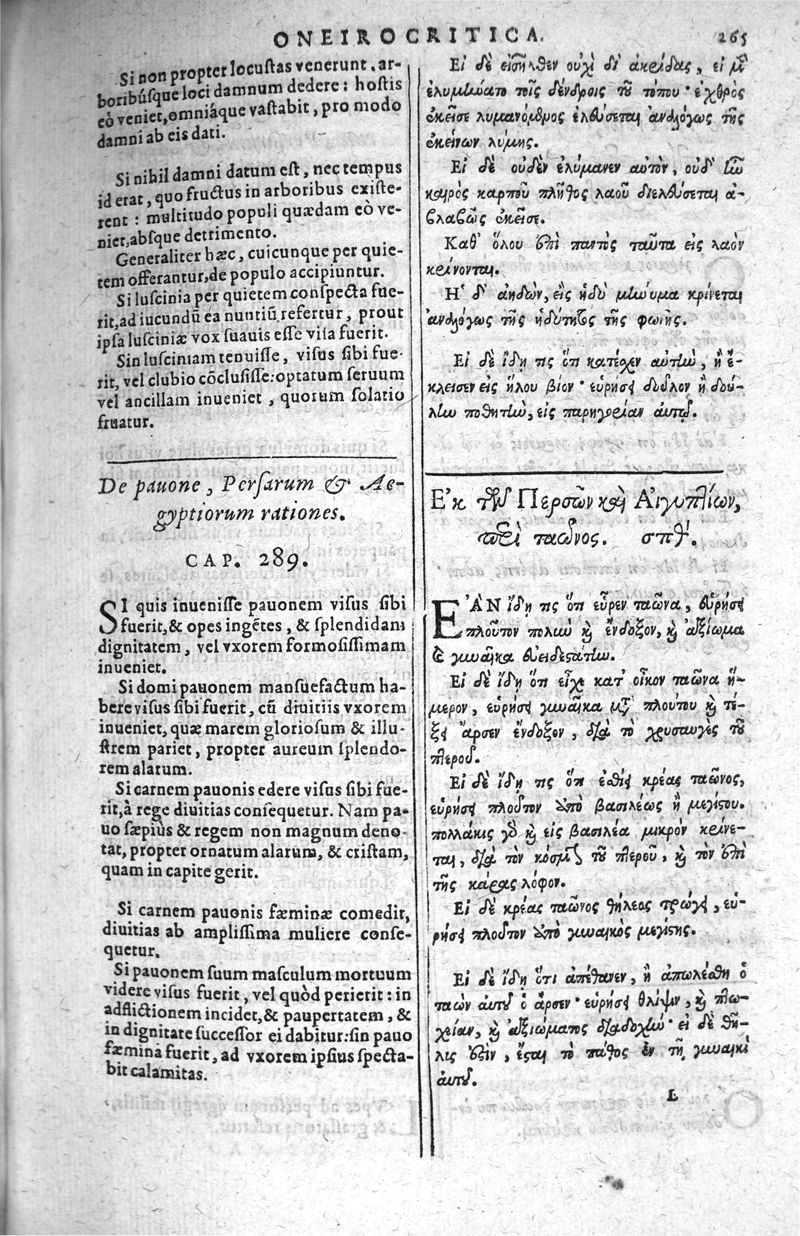 ONEIROCRITICA. 265
Si non propter locustas venerunt, ar-
boribúsque loci damnum dedere: hostis
eò veniet, omniáque vastabit, pro modo
damni ab eis dati.
Si nihil damni datum est, nec tempus
id erat, quo fructus in arboribus existe-
rent: multitudo populi quædam eò ve-
niet, absque detrimento.
Generaliter hæc, cuicunque per quie-
tem offerantur, de populo accipiuntur.
Si luscinia per quietem conspecta fue-
rit, ad iucundũ ea nuntiũ refertur, prout
ipsa lusciniæ vox suauis esse visa fuerit.
Sin lusciniam tenuisse, visus sibi fue-
rit, vel clubio cõclusisse: optatum seruum
vel ancillam inueniet, quorum solatio
fruatur.
De pauone, Persarum & Ae-
gyptiorum rationes.
CAP. 289.
SI quis inuenisse pauonem visus sibi
fuerit, & opes ingẽtes, & splendidam
dignitatem, vel vxorem formosissimam
inueniet.
Si domi pauonem mansuefactum ha-
bere visus sibi fuerit, cũ diuitiis vxorem
inueniet, quæ marem gloriosum & illu-
strem pariet, propter aureum splendo-
rem alarum.
Si carnem pauonis edere visus sibi fue-
rit, à rege diuitias consequetur. Nam pa-
uo sæpius & regem non magnum deno-
tat, propter ornatum alarum, & cristam,
quam in capite gerit.
Si carnem pauonis fæminæ comedit,
diuitias ab amplissima muliere conse-
quetur.
Si pauonem suum masculum mortuum
videre visus fuerit, vel quòd perierit: in
adflictionem incidet, & paupertatem, &
in dignitate successor ei dabitur: sin pauo
fæmina fuerit, ad vxorem ipsius specta-
bit calamitas.
Εἰ δὲ εἰσῆλθεν οὐχὶ δι' ἀκρίδας, εἰ μὲν
ἐλυμήναντο τοῖς δένδροις τοῦ τόπου· ἐχθρὸς
ἐκεῖσε λυμανόμενος ἐλεύσεται ἀναλόγως τῆς
ἐκείνων λύμης.
Εἰ δὲ οὐδὲν ἐλύμανεν αὐτὸν, οὐδ' ἦν
καιρὸς καρποῦ πλῆθος λαοῦ διελεύσεται ἀ-
βλαβῶς ἐκεῖσε.
Καθ' ὅλου ἐπὶ παντὸς ταῦτα εἰς λαὸν
κρίνονται.
Ἡ δ' ἀηδὼν, εἰς ἡδὺ μήνυμα κρίνεται
ἀναλόγως τῆς ἡδύτητος τῆς φωνῆς.
Εἰ δὲ ἴδῃ τις ὅτι κατέχεν αὐτὴν, ἢ ἔ-
κλεισεν εἰς ἥλου βίον· εὑρήσει δοῦλον ἢ δού-
λην ποθητὴν, εἰς παρηγορίαν αὐτοῦ.
Ἐκ τῶν Περσῶν καὶ Αἰγυπτίων,
περὶ ταῶνος. σπθʹ.
ΕΑΝ ἴδῃ τις ὅτι εὗρεν ταῶνα, εὑρήσει
πλοῦτον πολὺν καὶ ἔνδοξον, καὶ ἀξίωμα
καὶ γυναῖκα εὐειδεστάτην.
Εἰ δὲ ἴδῃ ὅτι εἶχε κατ' οἶκον ταῶνα ἥ-
μερον, εὑρήσει γυναῖκα μετὰ πλούτου καὶ τέ-
ξει ἄρσεν ἔνδοξον, διὰ τὸ χρυσαυγὲς τοῦ
πτεροῦ.
Εἰ δὲ ἴδῃ τις ὅτι ἐσθίει κρέας ταῶνος,
εὑρήσει πλοῦτον ἀπὸ βασιλέως ἢ μεγίστου.
πολλάκις γὰρ καὶ εἰς βασιλέα μικρὸν κρίνε-
ται, διὰ τὸν κόσμον τοῦ πτεροῦ, καὶ τὸν ἐπὶ
τῆς κάρας λόφον.
Εἰ δὲ κρέας ταῶνος θήλεος τρώγει, εὑ-
ρήσει πλοῦτον ἀπὸ γυναικὸς μεγίστης.
Εἰ δὲ ἴδῃ ὅτι ἀπέθανεν, ἢ ἀπωλέσθη ὁ
ταὼν αὐτοῦ ὁ ἄρσεν· εὑρήσει θλίψιν, καὶ πτω-
χείαν, καὶ ἀξιώματος διαδοχήν· εἰ δὲ θῆ-
λις ἐστὶν, ἔσται τὸ πάθος ἐν τῇ γυναικὶ
αὐτοῦ.
L